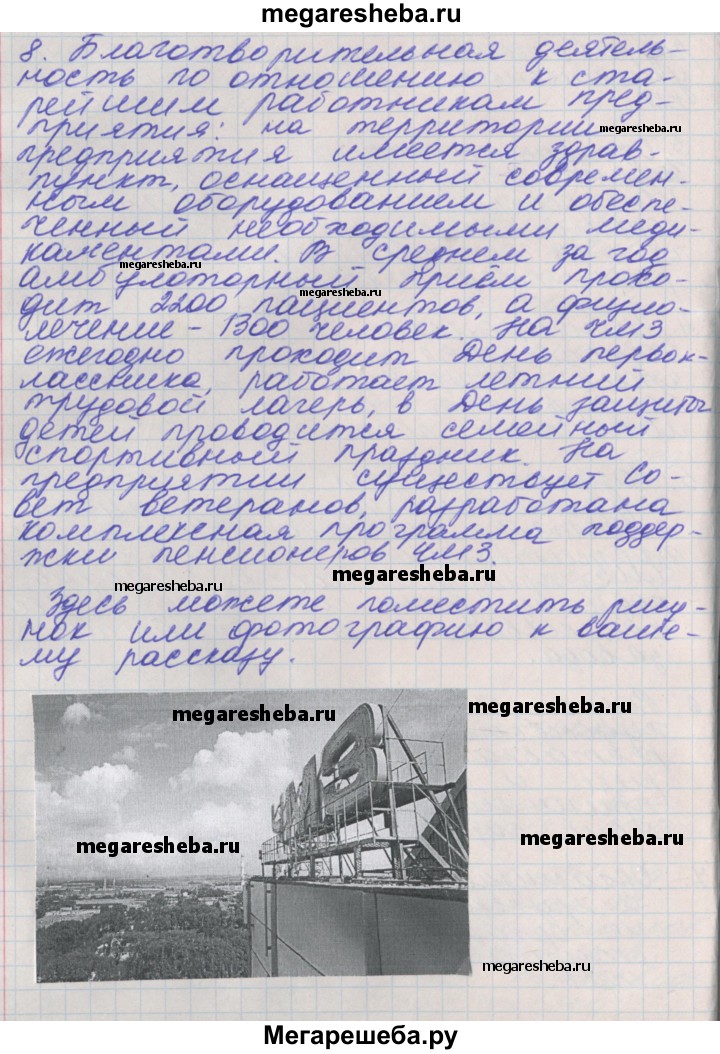 megaresheba.ru
8. Благотворительная деятель-
ность по отношению к ста-
рейшим работникам пред-
приятия: на территории
megaresheba.ru
предприятия имеется здрав-
пункт, оснащенный современ-
ным оборудованием и обеспе-
ченный необходимыми меди-
каментами. В среднем за год
megaresheba.ru
амбулаторный приём прохо-
megaresheba.ru
дит 2200 пациентов, а физио-
лечение – 1300 человек. На ЧМЗ
ежегодно проходит День первок-
лассника, работает летний
трудовой лагерь, в День защиты
детей проводится семейный
спортивный праздник. На
предприятии существует Со-
вет ветеранов, разработана
комплексная программа поддер-
жки пенсионеров ЧМЗ.
megaresheba.ru
megaresheba.ru
Здесь можете поместить рису-
megaresheba.ru
нок или фотографию к ваше-
му рассказу.
megaresheba.ru
megaresheba.ru
megaresheba.ru
megaresheba.ru
megaresheba.ru
Мегарешеба.ру